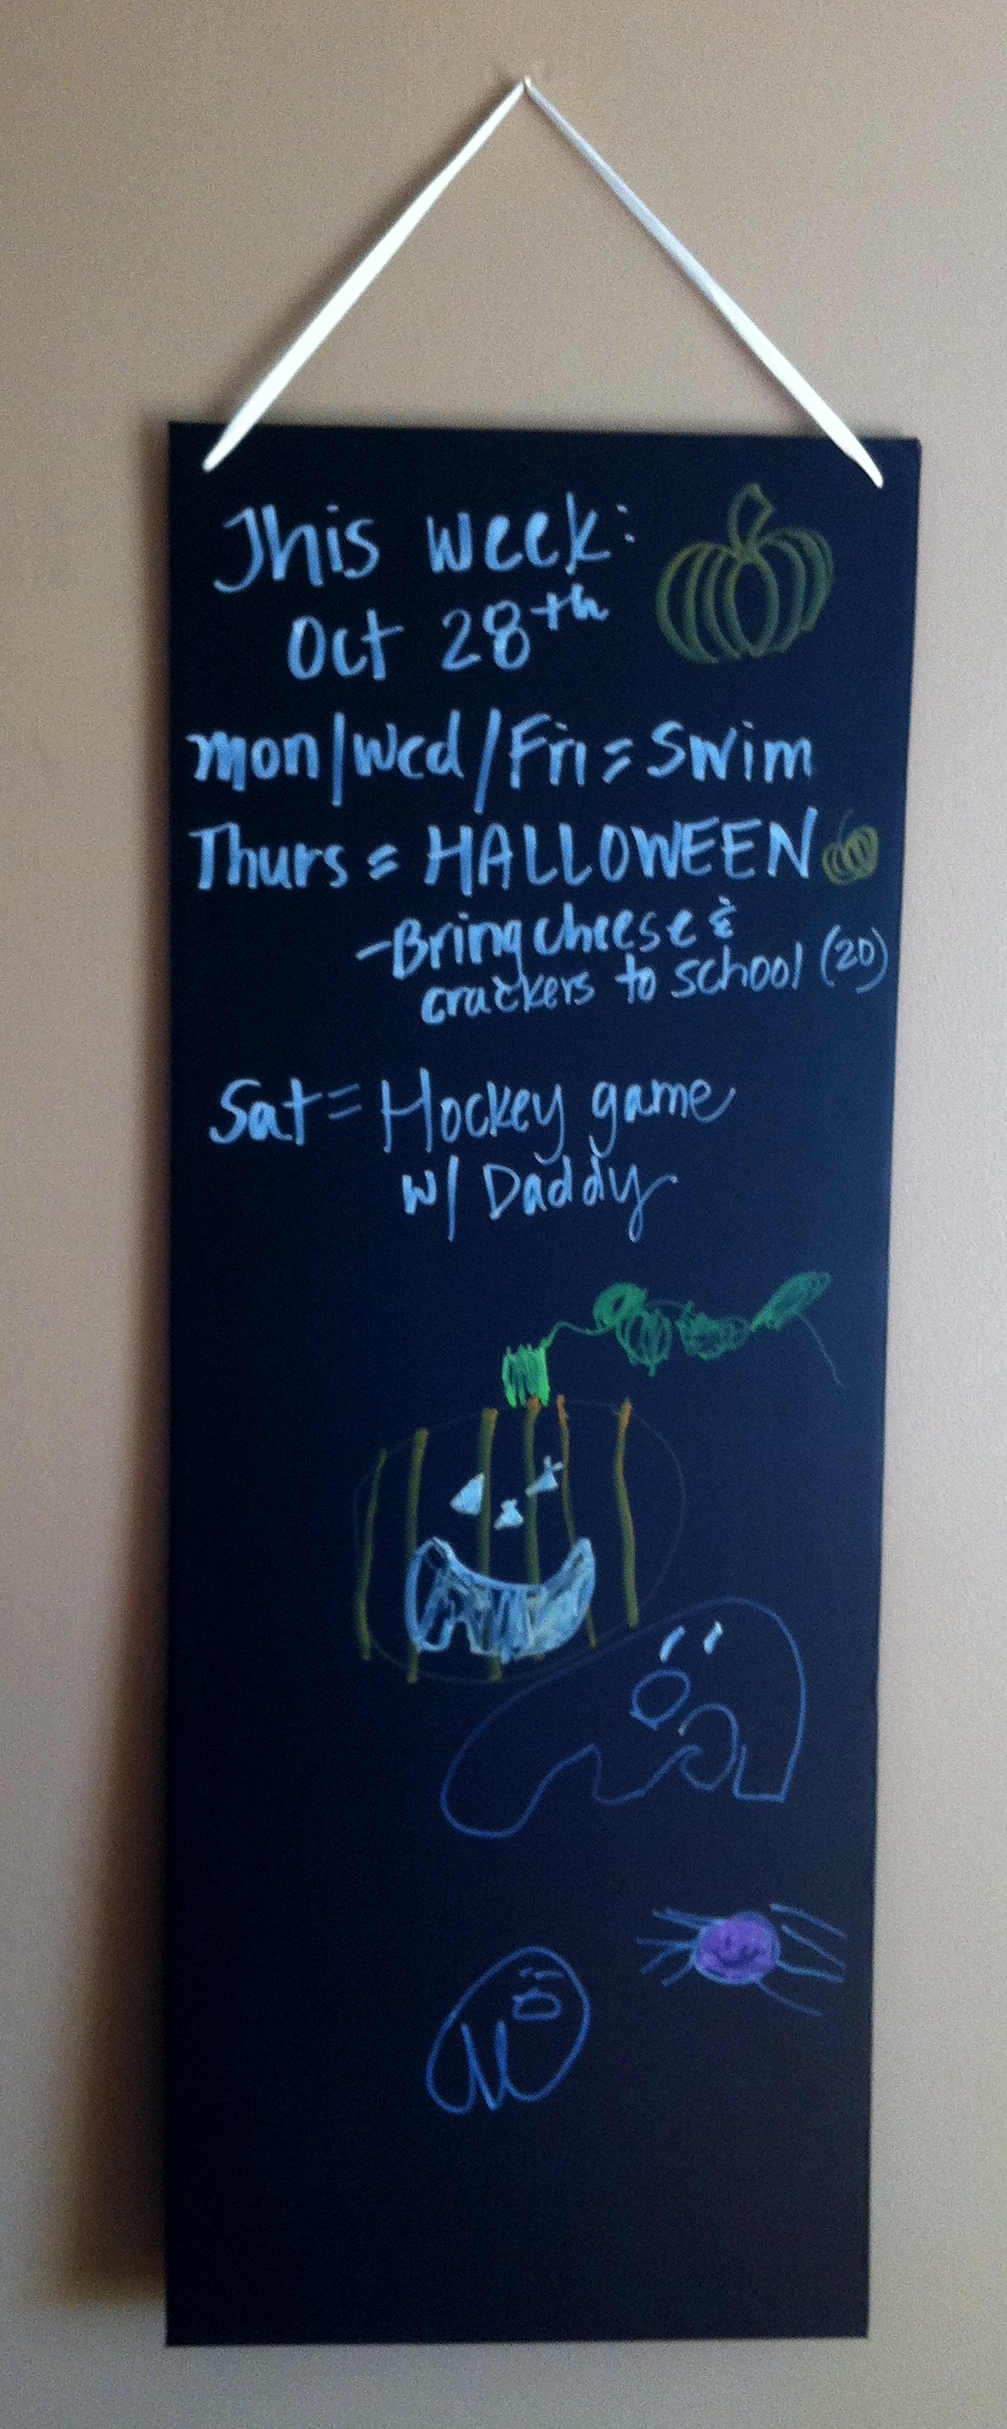 This week:
Oct 28th
Mon/Wed/Fri = Swim
Thurs = HALLOWEEN
- Bring cheese &
crackers to school (20)
Sat = Hockey game
w/ Daddy